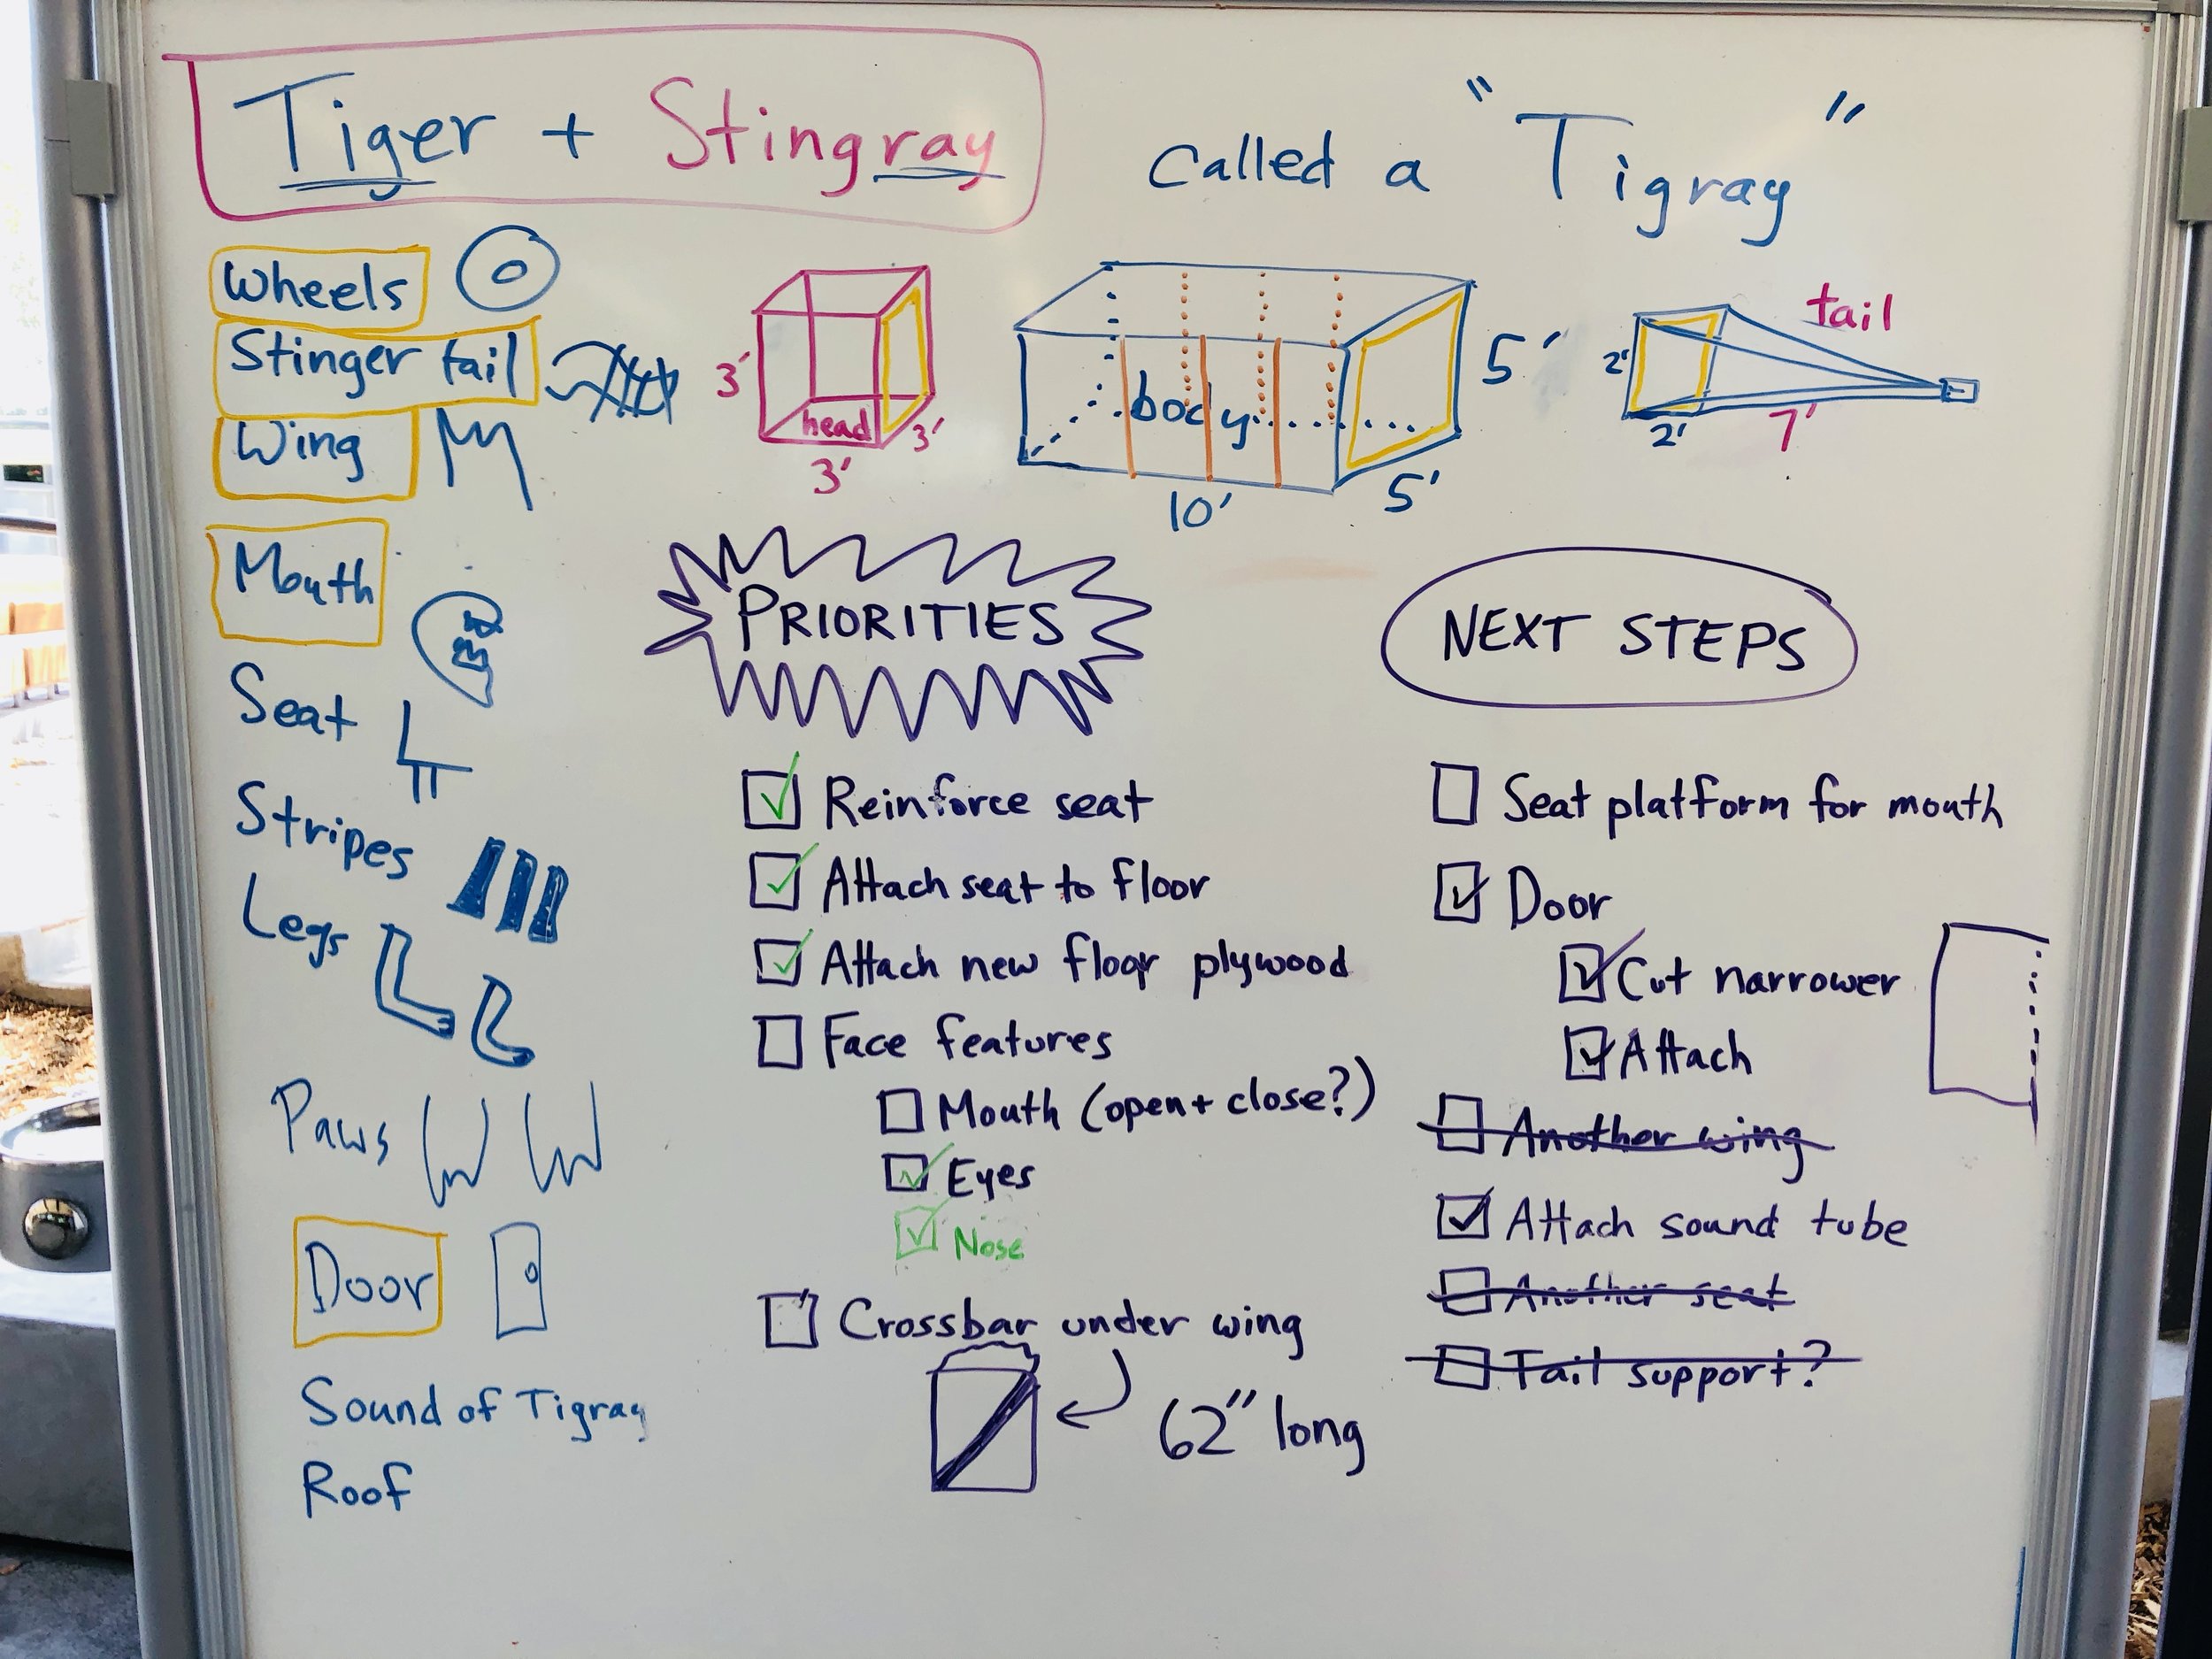 Tiger + Stingray called a "Tigray"
Wheels
Stinger tail
Wing
Mouth
Seat
Stripes
Legs
Paws
Door
Sound of Tigray
Roof
3'
head
3'
3'
body
5'
10'
5'
tail
2'
2'
7'
PRIORITIES
Reinforce seat
Attach seat to floor
Attach new floor plywood
Face features
Mouth (open + close?)
Eyes
Nose
Crossbar under wing
62" long
NEXT STEPS
Seat platform for mouth
Door
Cut narrower
Attach
Another wing
Attach sound tube
Another seat
Tail support?